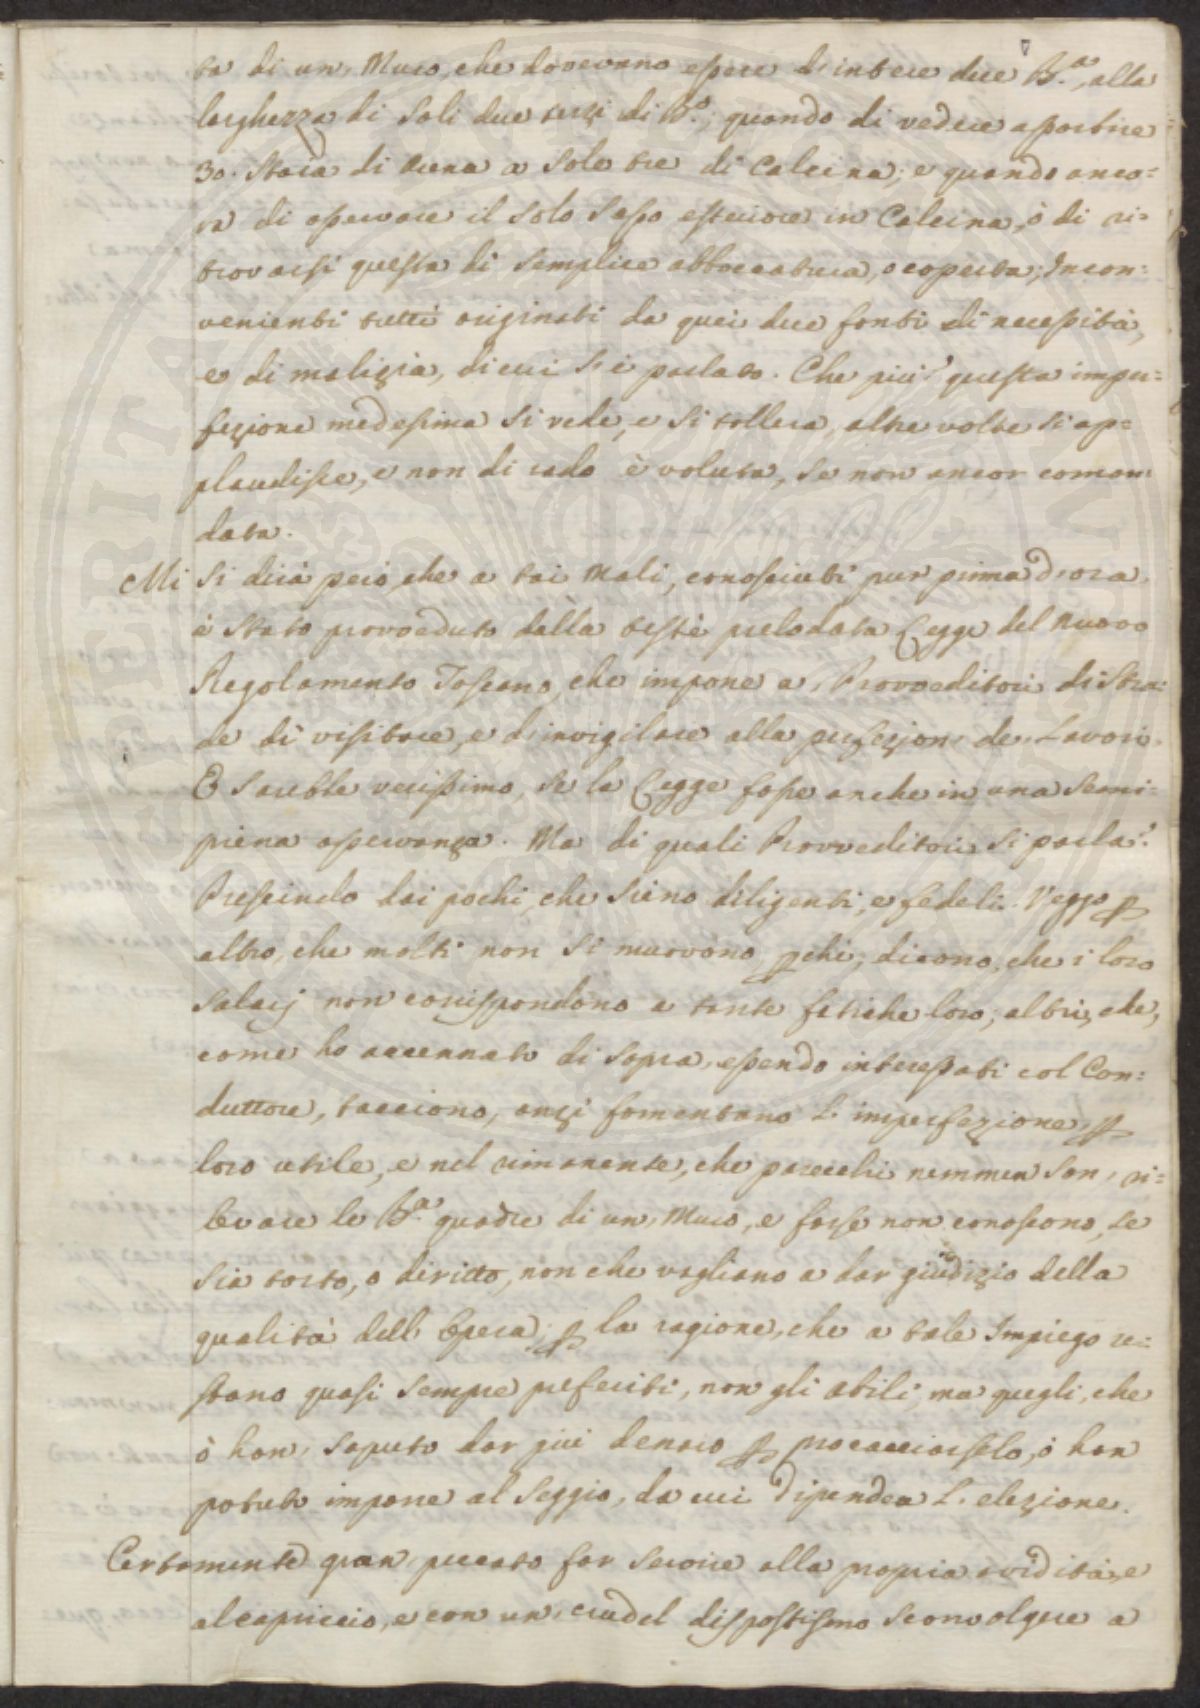 ta di un, Muro, che dovevano essere d'intere due B.ᵃ, alla
larghezza di soli due terzi di B.ᵒ; quando di vedere assortire
30. Staia di Rena a sole tre di Calcina; e quando anco=
ra di osservare il solo Sasso esteriore in Calcina, ò di ri=
trovarsi questa di semplice abboccatura, o coperta; Incon=
venienti tutti originati da quei due fonti di necessità,
e di malizia, di cui si è parlato. Che più? questa imper=
fezione medesima si vede, e si tollera, altre volte si ap=
plaudisce, e non di rado è voluta, se non ancor coman=
data.
Mi si dirà però, che a tai Mali, conosciuti pur prima d'ora,
è stato provveduto dalla testè prelodata Legge del nuovo
Regolamento Toscano, che impone a, Provveditori di Stra=
de di visitare, e d'invigilare alla perfezion, de, Lavori.
E sarebbe verissimo, se la Legge fosse anche in una semi=
piena osservanza. Ma di quali Provveditori si parla?
Prescindo dai pochi, che sieno diligenti, e fedeli. Veggo ꝑ
altro, che molti non si muovono ꝑchè, dicono, che i loro
Salarj non corrispondono a tante fatiche loro; altri, che,
come ho accennato di sopra, essendo interessati col Con=
duttore, tacciono, anzi fomentano l'imperfezione, ꝑ
loro utile, e nel rimanente, che parecchi nemmen san, ri=
levare le B.ᵃ quadre di un, Muro, e forse non conoscono, se
sia torto, o diritto, non che vagliano a dar giudizio della
qualità dell'Opera; ꝑ la ragione, che a tale Impiego re=
stano quasi sempre preferiti, non gli abili, ma quegli, che
ò han, saputo dar più denaro ꝑ procacciarselo, ò han
potuto imporre al Seggio, da cui dipendea l'elezione.
Certamente gran, peccato far servire alla propria avidità, e
al capriccio, e con un, crudel dispotismo sconvolgere a